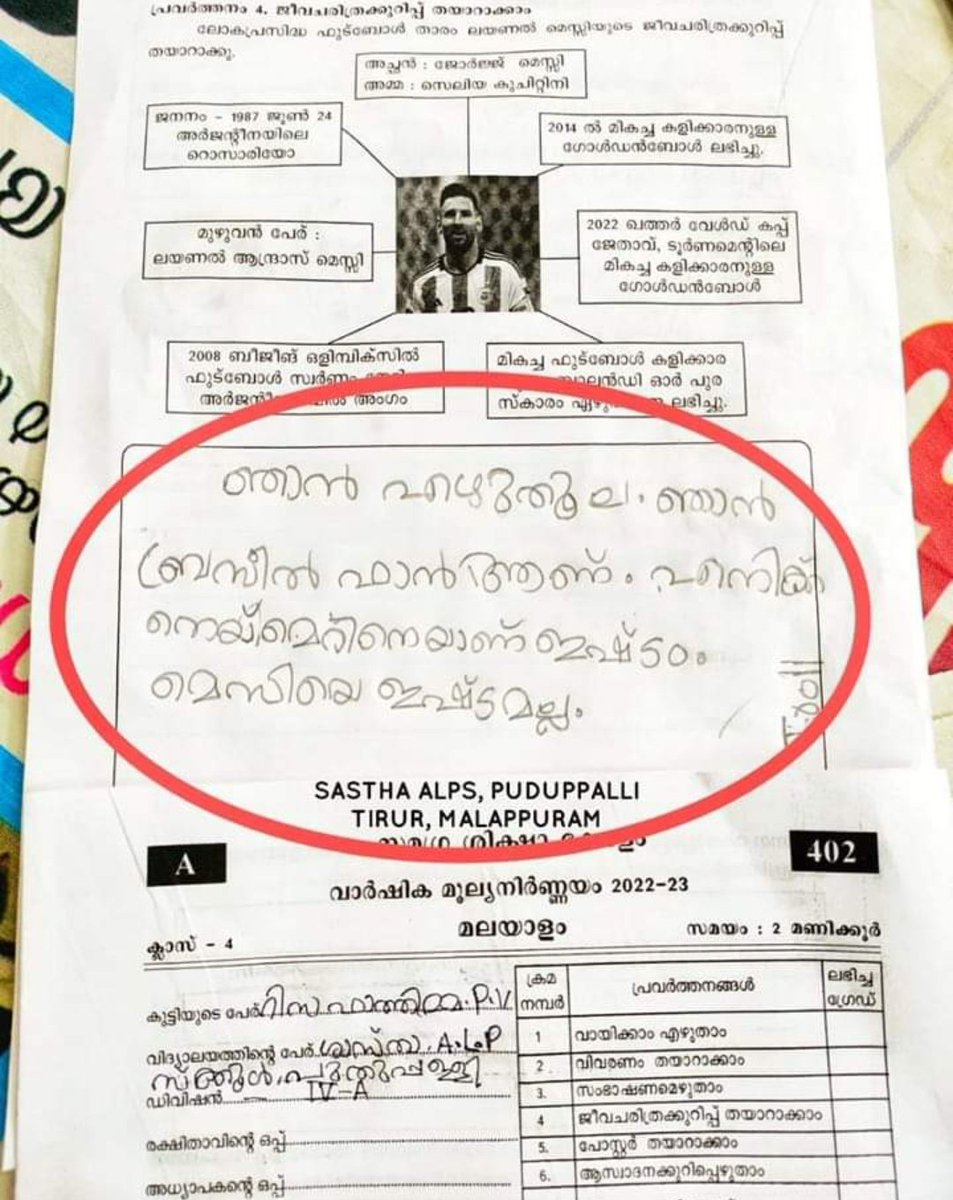 പ്രവർത്തനം 4. ജീവചരിത്രക്കുറിപ്പ് തയാറാക്കാം
ലോകപ്രസിദ്ധ ഫുട്ബോൾ താരം ലയണൽ മെസ്സിയുടെ ജീവചരിത്രക്കുറിപ്പ്
തയാറാക്കൂ.
അച്ഛൻ : ജോർജ്ജ് മെസ്സി
അമ്മ : സെലിയ കുചിറ്റിനി
ജനനം - 1987 ജൂൺ 24
അർജന്റീനയിലെ
റൊസാരിയോ
2014 ൽ മികച്ച കളിക്കാരനുള്ള
ഗോൾഡൻബോൾ ലഭിച്ചു.
മുഴുവൻ പേര് :
ലയണൽ ആന്ദ്രാസ് മെസ്സി
2022 ഖത്തർ വേൾഡ് കപ്പ്
ജേതാവ്, ടൂർണമെന്റിലെ
മികച്ച കളിക്കാരനുള്ള
ഗോൾഡൻബോൾ
2008 ബീജീങ് ഒളിമ്പിക്സിൽ
ഫുട്ബോൾ സ്വർണം
അംഗം
മികച്ച ഫുട്ബോൾ കളിക്കാര
ഓർ പുര
സ്കാരം ലഭിച്ചു.
ഞാൻ എഴുതൂല. ഞാൻ
ബ്രസീൽ ഫാൻ ആണ്. എനിക്ക്
നെയ്മെറിനെയാണ് ഇഷ്ടം.
മെസിയെ ഇഷ്ടമല്ല.
SASTHA ALPS, PUDUPPALLI
TIRUR, MALAPPURAM
A
402
വാർഷിക മൂല്യനിർണ്ണയം 2022-23
മലയാളം
ക്ലാസ് - 4
സമയം : 2 മണിക്കൂർ
കുട്ടിയുടെ പേര് റിസ ഫാത്തിമ. P.V
വിദ്യാലയത്തിന്റെ പേര് ശാസ്താ. A.L.P
സ്കൂൾ. പുതുപ്പള്ളി
ഡിവിഷൻ IV-A
രക്ഷിതാവിന്റെ ഒപ്പ്
അധ്യാപകന്റെ ഒപ്പ്
ക്രമ നമ്പർ പ്രവർത്തനങ്ങൾ ലഭിച്ച ഗ്രേഡ്
1 വായിക്കാം എഴുതാം
2. വിവരണം തയാറാക്കാം
3. സംഭാഷണമെഴുതാം
4 ജീവചരിത്രക്കുറിപ്പ് തയാറാക്കാം
5. പോസ്റ്റർ തയാറാക്കാം
6. ആസ്വാദനക്കുറിപ്പെഴുതാം